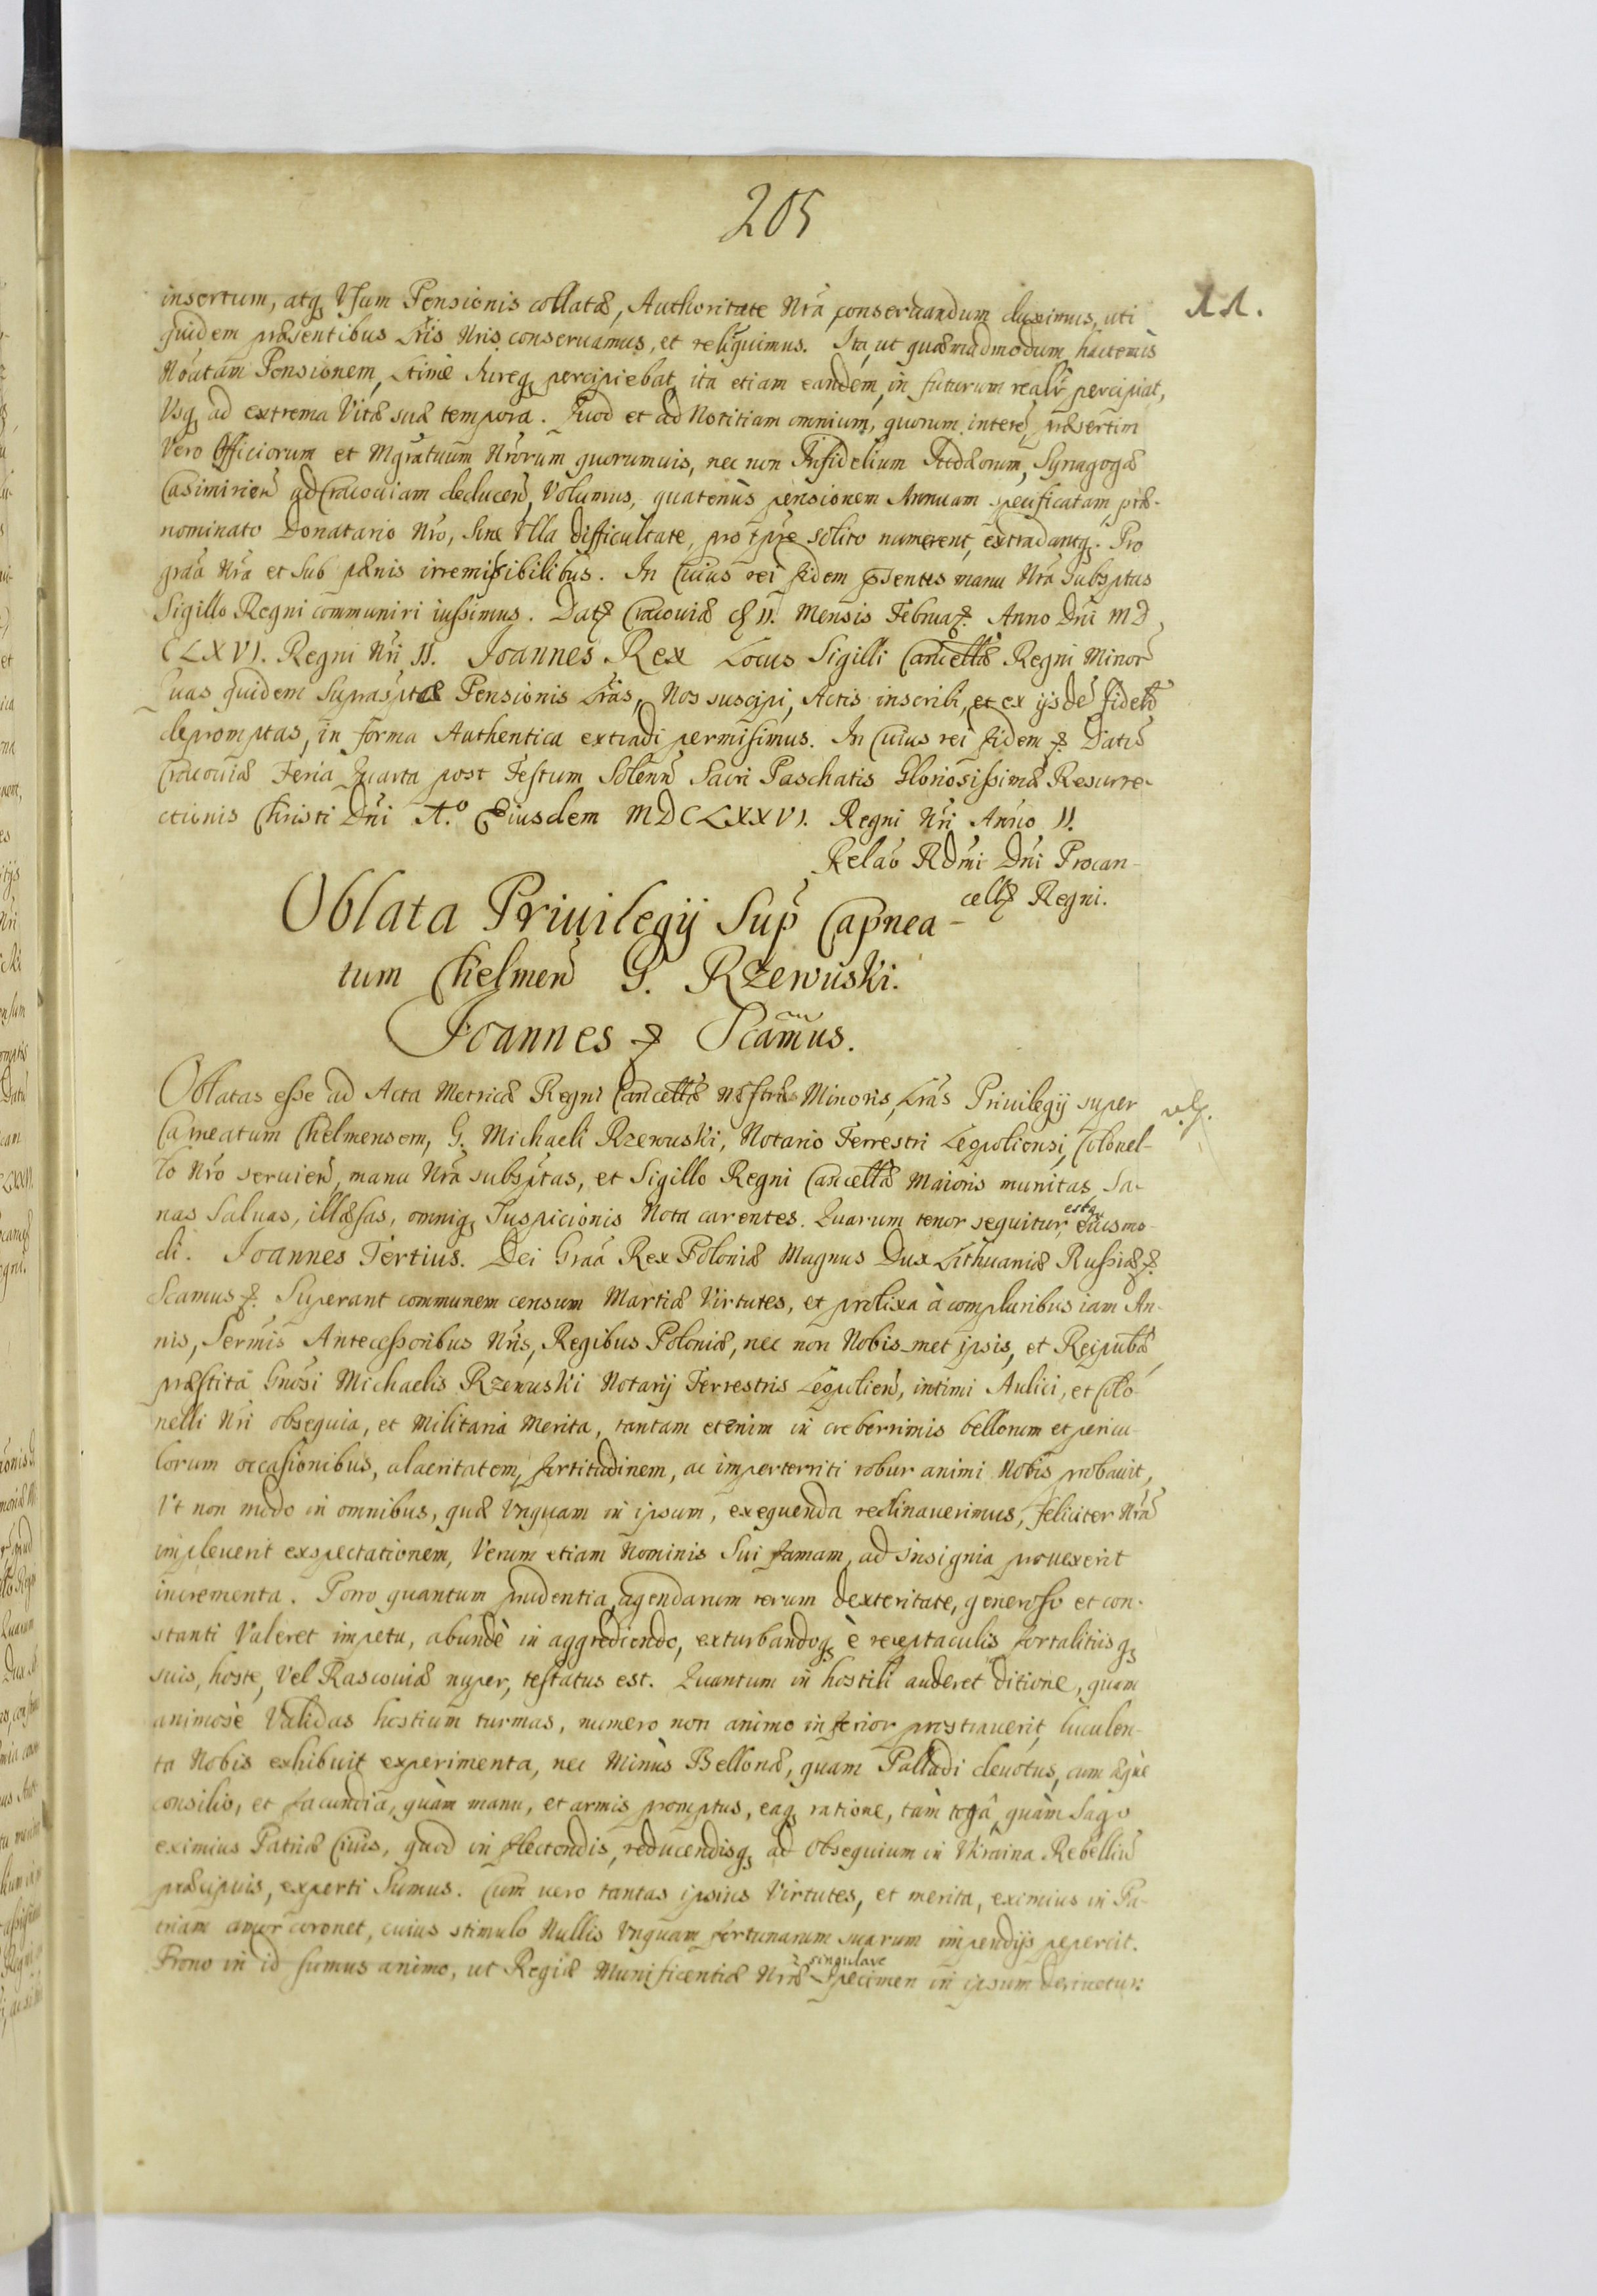 205
insertum, atq, Usum Pensionis collatæ, Authoritate Nrã conseruandum duximus, uti
quidem præsentibus Lrís Nris conseruamus, et relinquimus. Ita, ut quemadmodum hactenùs
Nóatam Pensionem, Ltimè Iureq, percipiebat, ita etiam eandem, in futurum realr percipiat,
Usq, ad extrema Vitæ suæ tempora. Quod et ad Notitiam omnium, quorum interẽ, præsertim
Vero Officiorum et Mgrãtuum Nrórum quorumuis, nec non Infidelium Iudæorum, Synagogæ
Casimirien ad Cracouiam deducen, Volumus, quatenùs pensionem Annuam specificatam præ-
nominato Donatario Nró, Sine Ulla difficultate, pro tpre solito numerent, extradantq. Pro
graã Nrã et Sub pænis irremissibilibus. In Cuius rei fidem psentes manu Nrã Subsptas
Sigillo Regni communiri iussimus. Dat Cracouiæ d 11. Mensis Februar. Anno Dni MD
CLXVI. Regni Nri II. Joannes Rex Locus Sigilli Cancellæ Regni Minor
Quas quidem Suprasptæ Pensionis Lrãs, Nos suscipi, Actis inscribi, et ex ijsdẽ fidelr
depromptas, in forma Authentica extradi permisimus. In Cuius rei fidem &. Datũ
Cracouiæ Feria Quarta post Festum Solenn Sacri Paschatis Gloriosissimæ Resurre-
ctionis Christi Dni Ao. Eiusdem MDCLXXVI. Regni Nri Anno II.
Relaó Rdmi Dni Procan-
cell Regni.
Oblata Priuilegij Sup Capnea-
tum Chelmen G. Rzewuski.
Joannes & Scamus.
Oblatas esse ad Acta Metricæ Regni Cancellæ Nostræ Minoris, Lrãs Priuilegij super
Capneatum Chelmensem, G. Michaeli Rzewuski, Notario Terrestri Leopoliensi, Colonel-
lo Nró seruien, manu Nrã subsptas, et Sigillo Regni Cancellæ Maioris munitas, Sa-
nas Saluas, illæsas, omniq, Suspicionis Nota carentes. Quarum tenor sequitur, estq, eiusmo-
di. Joannes Tertius. Dei Graã Rex Poloniæ Magnus Dux Lithuaniæ Russiæ &.
Scamus &. Superant communem censum Martiæ Virtutes, et prolixa à compluribus iam An-
nis, Sermis Antecessoribus Nris, Regibus Poloniæ, nec non Nobis-met ipsis, et Reipubæ
præstita Gnosi Michaelis Rzewuski Notarij Terrestris Leopolien, intimi Aulici, et Colo-
nelli Nri obsequia, et Militaria Merita, tantam etenim in creberrimis bellorum et pericu-
lorum occasionibus, alacritatem, fortitudinem, ac imperterriti robur animi Nobis probauit,
Ut non modo in omnibus, quæ Unquam in ipsum, exequenda reclinauerimus, feliciter Nrã
impleuerit exspectationem, Verum etiam Nominis Sui famam, ad insignia prouexerit
incrementa. Porro quantum prudentia, agendarum rerum dexteritate, generoso et con-
stanti Valeret impetu, abundè in aggrediendo, exturbandoq, è receptaculis fortalitiisq,
suis, hoste, Vel Rascouiæ nuper, testatus est. Quantum in hostili auderet ditione, quam
animosè Validas hostium turmas, numero non animo inferior prostrauerit, luculen-
ta Nobis exhibuit experimenta, nec Minùs Bellonæ, quam Palladi deuotus, cum æquè
consilio, et facundiã, quàm manu, et armis promptus, eaq, ratione, tàm togâ, quàm Sago
eximius Patriæ Ciuis, quod in flectendis, reducendisq, ad Obsequium in Ukraina Rebelliũ
præcipuis, experti Sumus. Cum uero tantas ipsius Virtutes, et merita, eximius in Pa-
triam amor coronet, cuius stimulo Nullis Unquam fortunarum suarum impendijs pepercit.
Prono in id sumus animo, ut Regiæ Munificentiæ Nræ singulare Specimen in ipsum deriuetur.